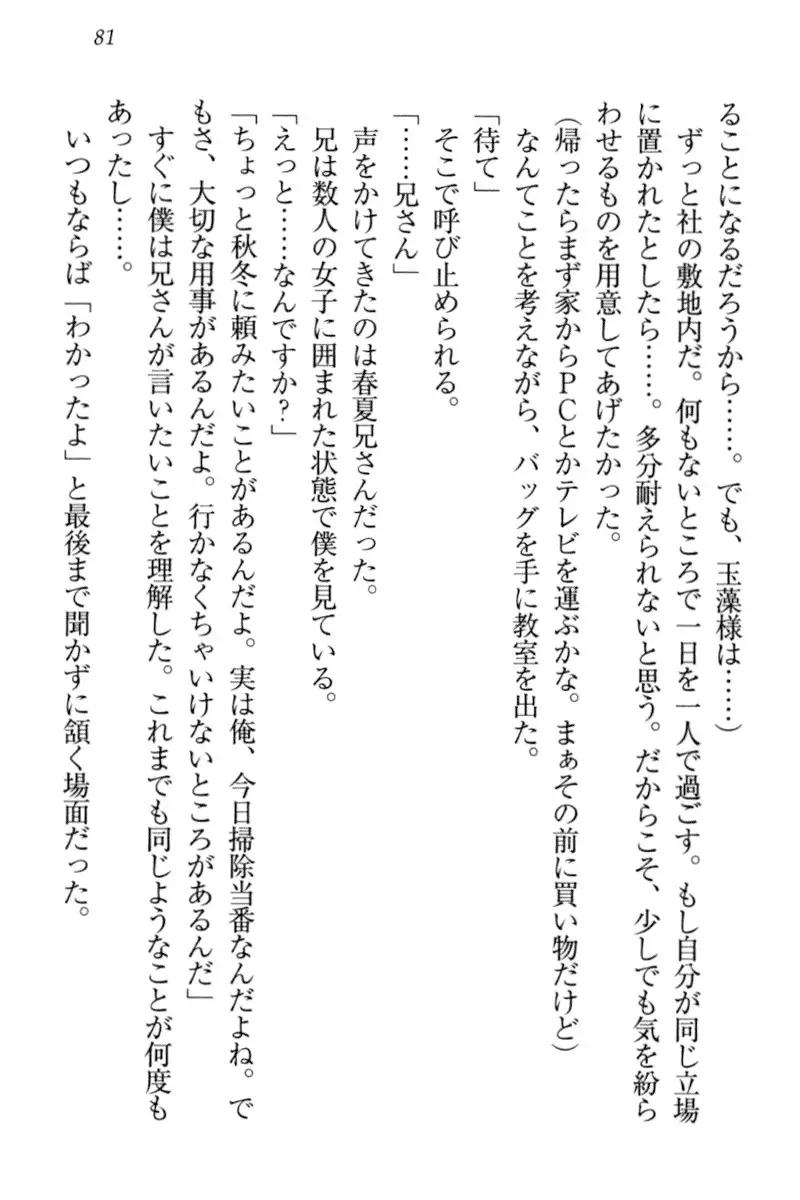 81
ることになるだろうから……。でも、玉藻様は……）
ずっと社の敷地内だ。何もないところで一日を一人で過ごす。もし自分が同じ立場
に置かれたとしたら……。多分耐えられないと思う。だからこそ、少しでも気を紛ら
わせるものを用意してあげたかった。
（帰ったらまず家からＰＣとかテレビを運ぶかな。まぁその前に買い物だけど）
なんてことを考えながら、バッグを手に教室を出た。
「待て」
そこで呼び止められる。
「……兄さん」
声をかけてきたのは春夏兄さんだった。
兄は数人の女子に囲まれた状態で僕を見ている。
「えっと……なんですか？」
「ちょっと秋冬に頼みたいことがあるんだよ。実は俺、今日掃除当番なんだよね。で
もさ、大切な用事があるんだよ。行かなくちゃいけないところがあるんだ」
すぐに僕は兄さんが言いたいことを理解した。これまでも同じようなことが何度も
あったし……。
いつもならば「わかったよ」と最後まで聞かずに頷く場面だった。